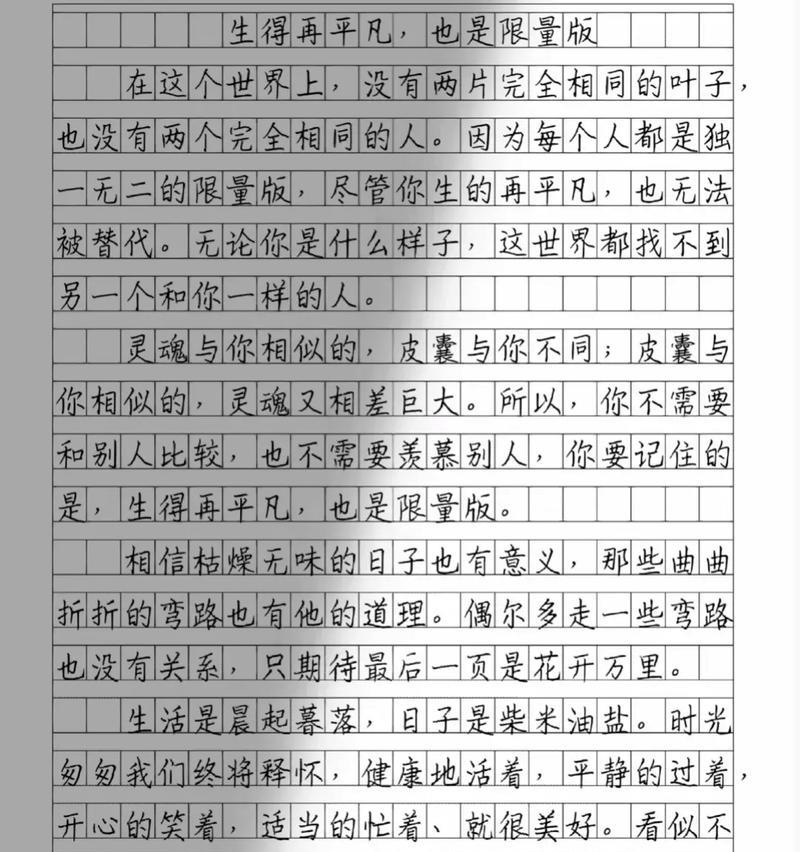 生得再平凡，也是限量版
在这个世界上，没有两片完全相同的叶子，
也没有两个完全相同的人。因为每个人都是独
一无二的限量版，尽管你生的再平凡，也无法
被替代。无论你是什么样子，这世界都找不到
另一个和你一样的人。
灵魂与你相似的，皮囊与你不同；皮囊与
你相似的，灵魂又相差巨大。所以，你不需要
和别人比较，也不需要羡慕别人，你要记住的
是，生得再平凡，也是限量版。
相信枯燥无味的日子也有意义，那些曲曲
折折的弯路也有他的道理。偶尔多走一些弯路
也没有关系，只期待最后一页是花开万里。
生活是晨起暮落，日子是柴米油盐。时光
匆匆我们终将释怀，健康地活着，平静的过着，
开心的笑着，适当的忙着、就很美好。看似不